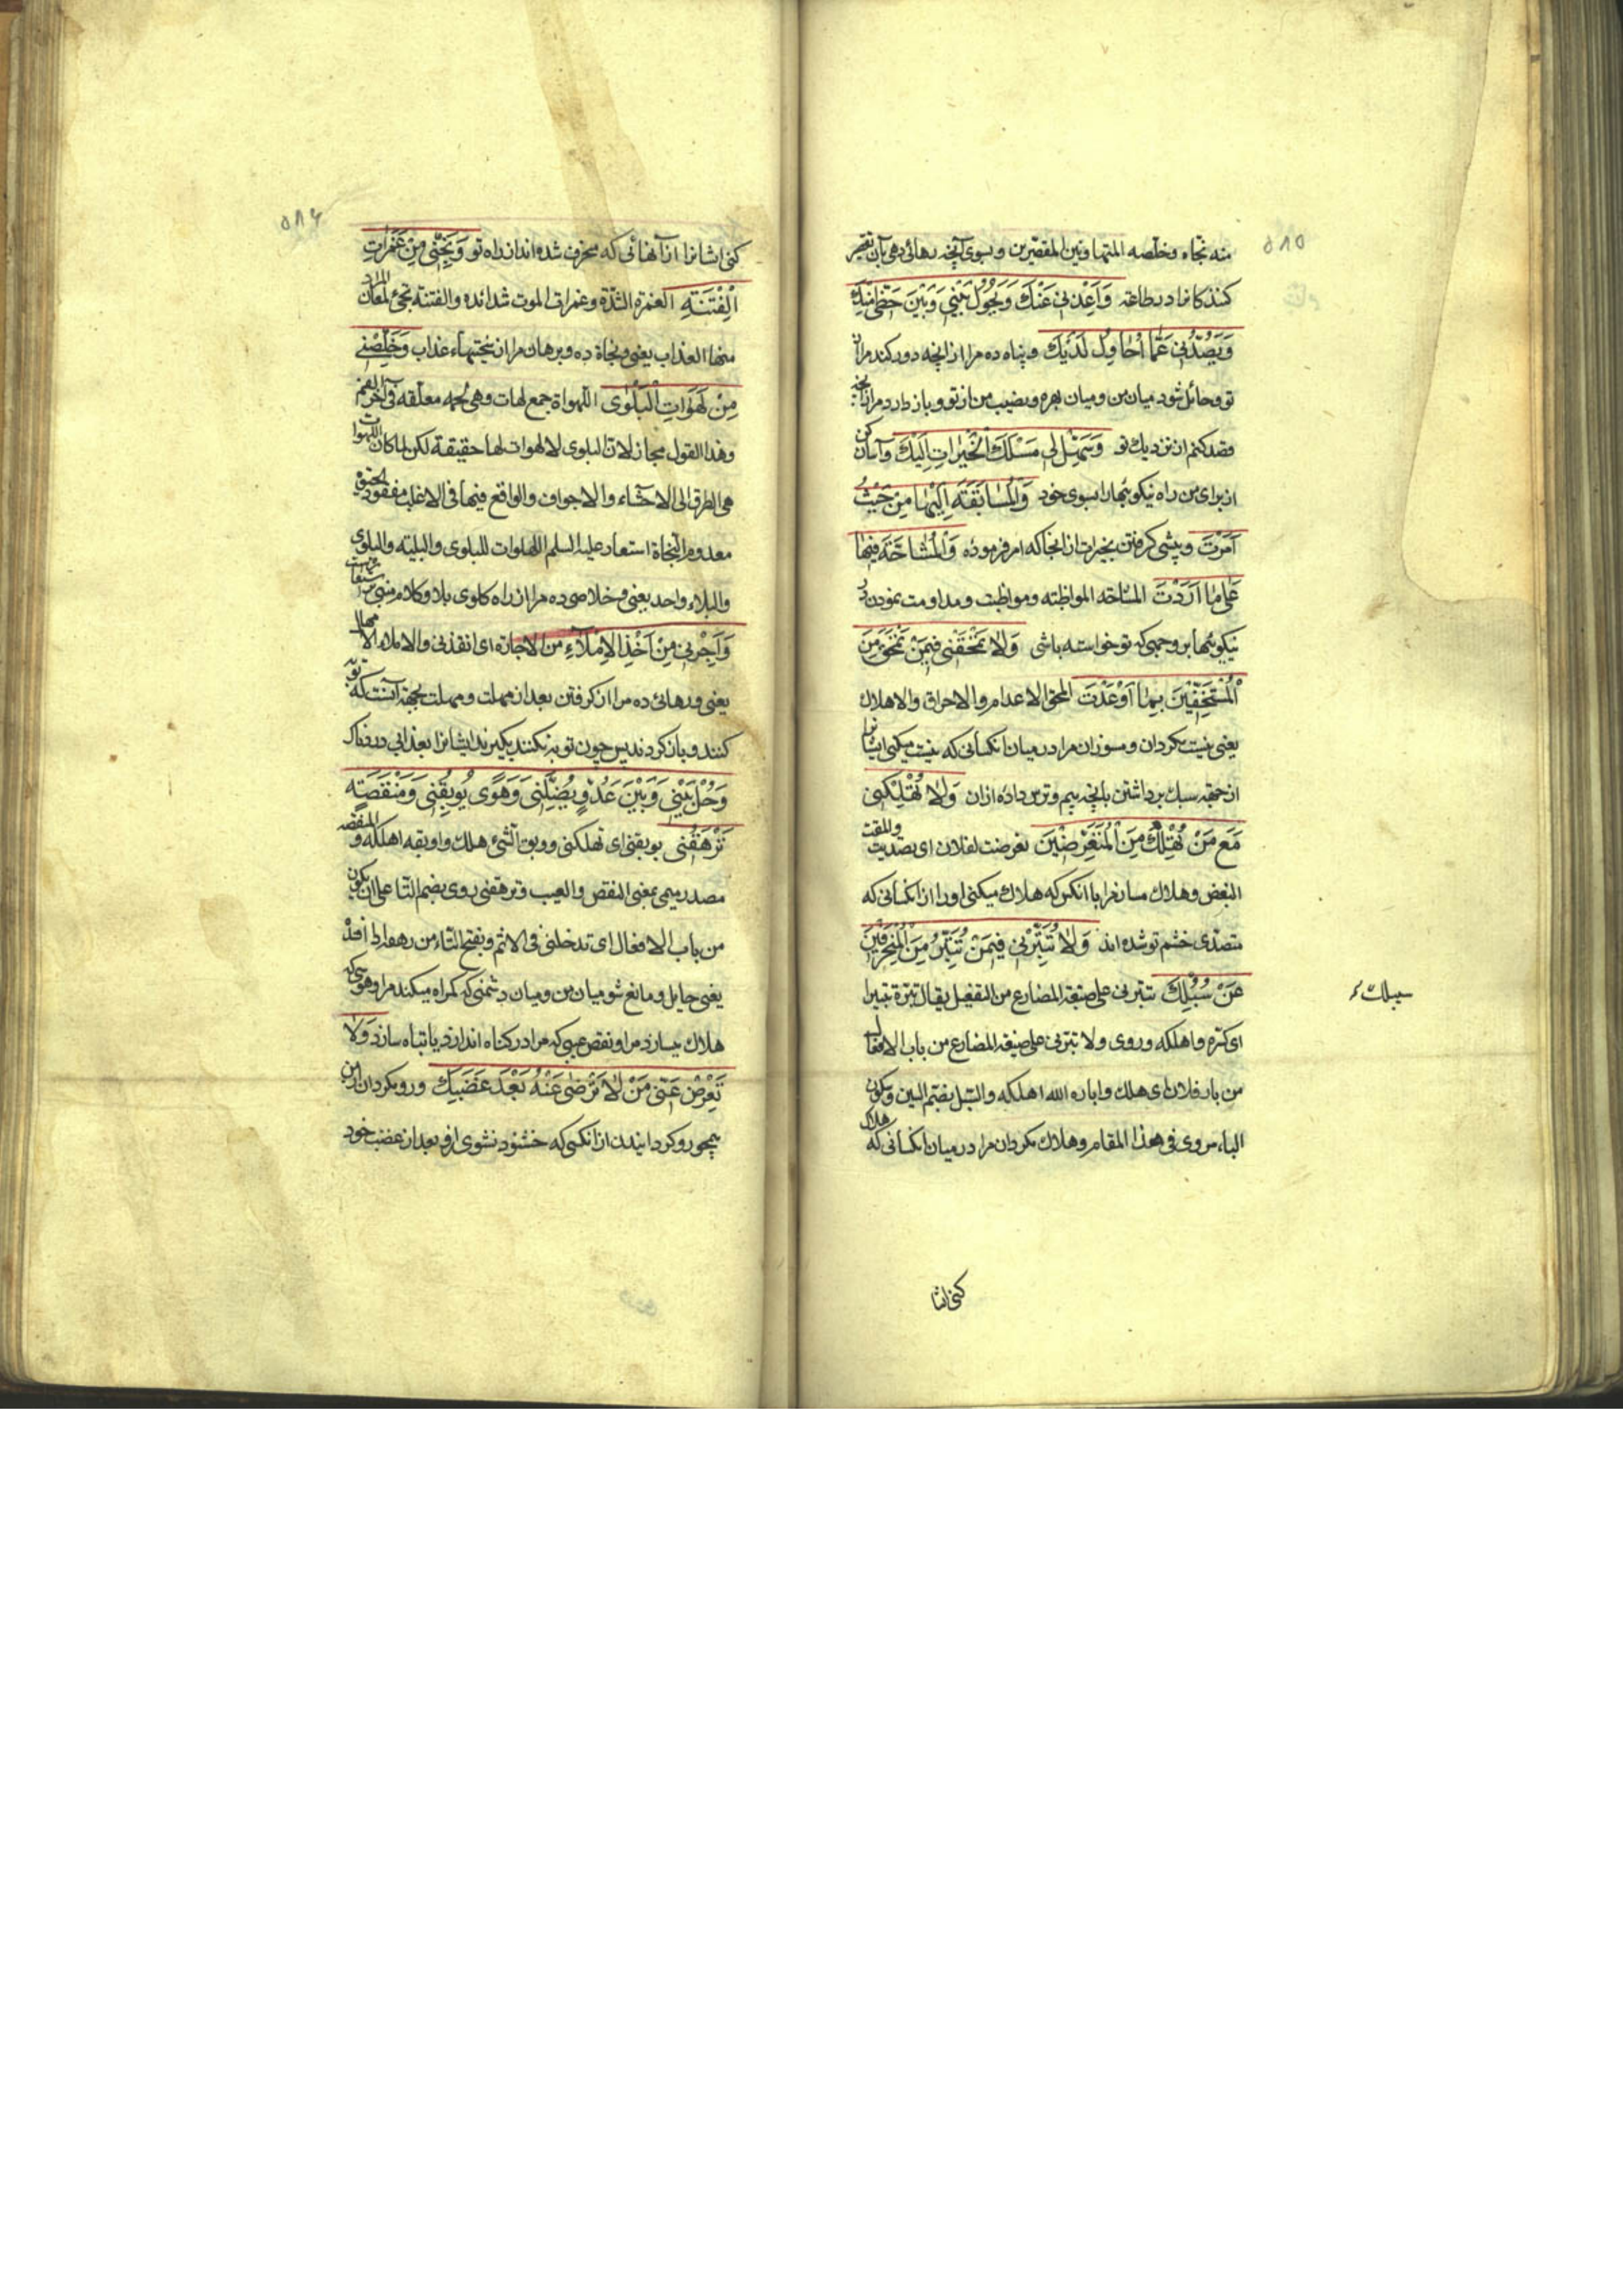 ٥٨٥
منه نجّاه وخلّصه المتهاونین المقصّرین وبسوی آنچه رهائی دهی بآن تقصیر
کنندکانرا در طاعته وَاَعِذْنی عَنْكَ وَیَحُولُ بَیْنی وَبَیْنَ حَظّی مِنْكَ
وَیَصُدُّنی عَمّٰا اُحٰاوِلُ لَدَیْكَ وپناه ده مرا از انچه دور کند مرا از
تو وحائل شود میان من ومیان بهره ونصیب من از تو وباز دارد مرا از انچه
قصد کنم از نزدیك تو وَسَهِّلْ لی مَسْلَكَ الْخَیْرٰاتِ اِلَیْكَ وآسان کن
از برای من راه نیکوئیها را بسوی خود وَالْمُسٰابَقَةَ اِلَیْهٰا مِنْ حَیْثُ
اَمَرْتَ وپیشی کرفتن بخیرات از انجا که امر فرموده وَالْمُشٰاحَّةَ فیهٰا
عَلیٰ مٰا اَرَدْتَ المشاحّه المواظبه ومواظبت ومداومت نمودن در
نیکوئیها بر وجهی که تو خواسته باشی وَلاٰ تَمْحَقْنی فیمَنْ تَمْحَقُ مِنَ
الْمُسْتَخِفّینَ بِمٰا اَوْعَدْتَ المحق الاعدام والاحراق والاهلاك
یعنی نیست مکردان ومسوزان مرا در میان انکسانی که نیست میکنی ایشانرا
از جهة سبك برداشتن بانچه بیم وترس داده ازان وَلاٰ تُهْلِکْنی
مَعَ مَنْ تُهْلِكُ مِنَ الْمُتَعَرِّضینَ تعرضت لفلان ای تصدیت والمقت
البغض وهلاك مساز مرا با انکس که هلاك میکنی اورا از انکسانی که
متصدّی خشم تو شده اند وَلاٰ تُتَبِّرْنی فیمَنْ تُتَبِّرُ مِنَ الْمُنْحَرِفینَ
عَنْ سُبُلِكَ تتبرنی علی صیغة المضارع من التفعیل یقال تبّره تتبیرا
سبیلك
ای کسّره واهلکه وروی ولا تبرنی علی صیغه المضارع من باب الافعال
من بار فلان ای هلك واباره الله اهلکه والسّبل بضمّ السین وسکون
الباء مروی فی هذا المقام وهلاك مکردان مرا در میان انکسانی که هلاك
کنی ایشا
٥٨٦
کنی ایشانرا از آنهائی که منحرف شده اند از راه تو وَنَجِّنی مِنْ غَمَرٰاتِ
الْفِتْنَةِ الغمره الشدّة وغمرات الموت شدائده والفتنة تجئ لمعان المراد
منها العذاب یعنی ونجاة ده وبرهان مرا از سختیهاء عذاب وَخَلِّصْنی
مِنْ لَهَوٰاتِ الْبَلْوٰی اللّهواة جمع لهات وهی لحمه معلّقه فی آخر الفم
وهذا القول مجاز لانّ البلوی لا لهوات لها حقیقة لکن لما کان اللهوات
هی الطرق الی الاحشاء والاجواف والواقع فیها فی الاغلب مفقود الحیوة
معدوم النجاة استعار علیه السلم اللّهوات للبلوی والبلیّه والبلوی
والبلاء واحد یعنی وخلاصی ده مرا از راه کلوی بلا وکلام مبنی بر استعاره است
وَاَجِرْنی مِنْ اَخْذِ الْاِمْلٰآءِ من الاجارة ای انقذنی والاملاء الامهال
یعنی ورهائی ده مرا از کرفتن بعد از مهلت ومهلت بجهة آنست که توبه
کنند وباز کردند پس چون توبه نکنند بکیرند ایشانرا بعذابی دردناك
وَحُلْ بَیْنی وَبَیْنَ عَدُوٍّ یُضِلُّنی وَهَوًی یُوبِقُنی وَمَنْقَصَةٍ
تَرْهَقُنی یوبقنی ای تهلکنی ووبق الشئ هلك واوبقه اهلکه والمنقصه
مصدر میمی بمعنی النقص والعیب وترهقنی روی بضم التّا علی ان یکون
من باب الافعال ای تدخلنی فی الاثم وبفتح التّاء من رهقه
یعنی حایل ومانع شو میان من ومیان دشمنی که کمراه میکند مرا وهوسی که
هلاك میسازد مرا ونقص عیبی که مرا در کناه اندازد یا تباه سازد وَلاٰ
تُعْرِضْ عَنّی مَنْ لاٰ تَرْضیٰ عَنْهُ بَعْدَ غَضَبِكَ ورو مکردان از من
همچو رو کردانیدن از انکسی که خشنود نشوی ازو بعد از غضب خود